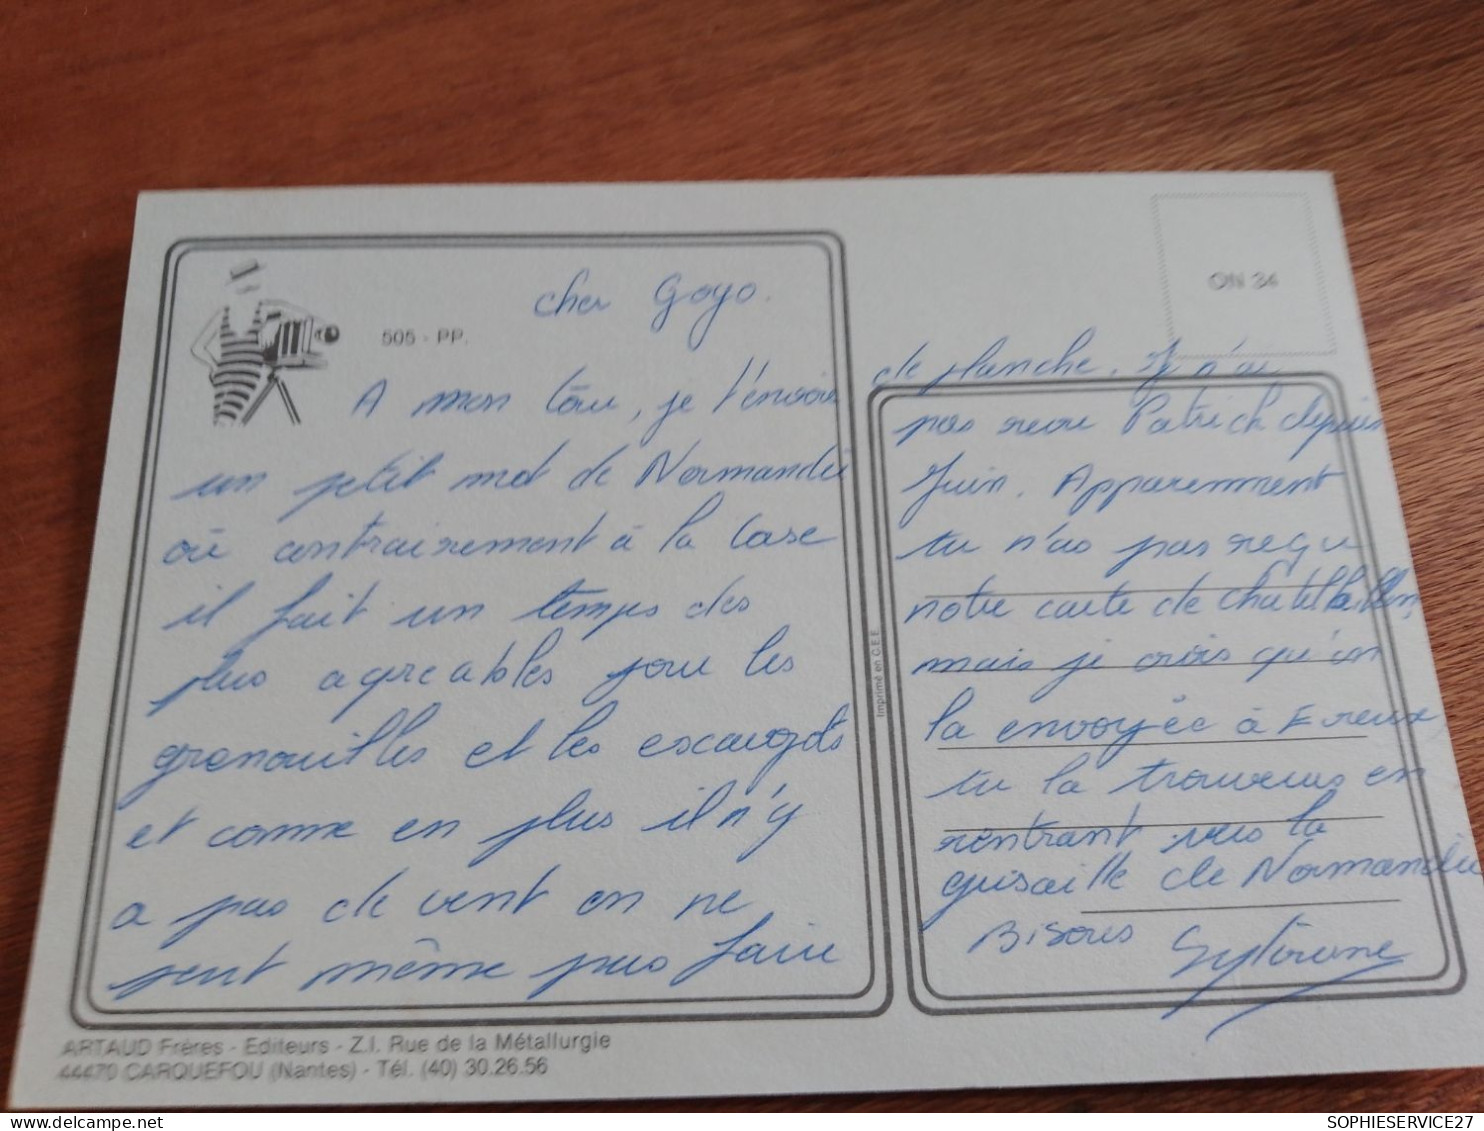 cher Goyo.
505 - PP.
A mon tour, je t'envoie
un petit mot de Normandie
où contrairement à la Corse
il fait un temps des
plus agréables pour les
grenouilles et les escargots
et comme en plus il n'y
a pas de vent on ne
peut même pas faire
ON 34
de planche. Je n'ai
pas revu Patrick depuis
Juin. Apparemment
tu n'as pas reçu
notre carte de Chatelaillon,
mais je crois qu'on
la envoyée à Evreux,
tu la trouveras en
rentrant vers la
grisaille de Normandie
Bisous
Imprimé en C.E.E.
ARTAUD Frères - Editeurs - Z.I. Rue de la Métallurgie
44470 CARQUEFOU (Nantes) - Tél. (40) 30.26.56
SOPHIESERVICE27